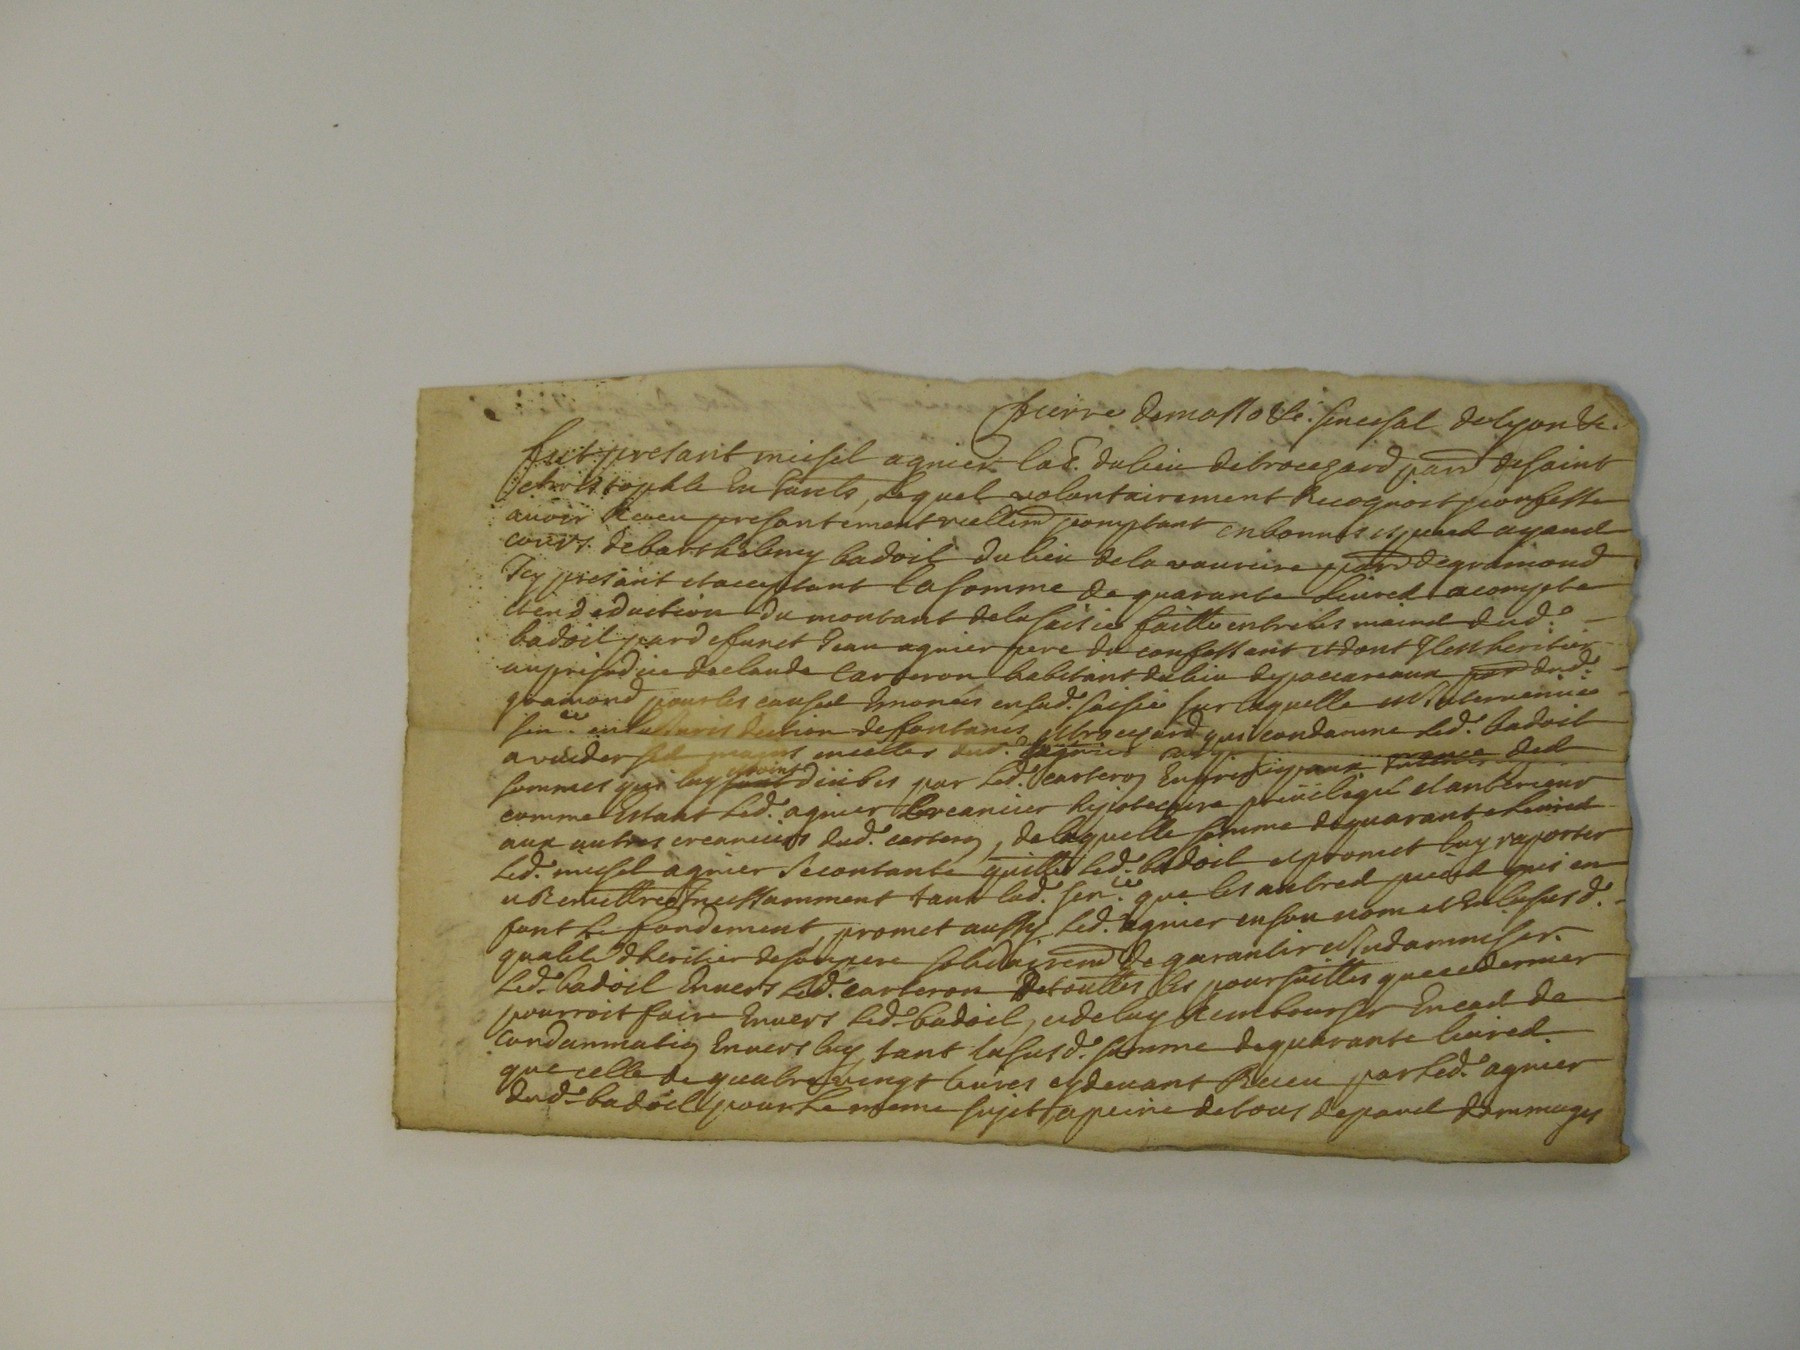 pierre demasso &c. senechal de lyon &c.
fut presant michel agnier lab. du lieu de brocchard parr. de saint
christophle en Jarests, lequel volontairement Recognoit confesse
avoir Receu presantement reellem. comptant en bonnes especes ayand
cours. de barthelemy badoil du lieu de la vaureire parr. de gramond
Icy presant et acceptant la somme de quarante livres a compte
et en deduction du montant de la saisie faitte entre les mains dud.
badoil par defunct Jean agnier pere du confessant et dont Il est heritier
au prejudice de claude carteron habitant du lieu de poccareaux dud.
gramond pour les causes enoncés en lad. saisie sur laquelle est Intervenüe
sen.ce en la Jurisdiction de fontanes et brocchard qui condamne led. badoil
a vuider ses mains en celles dud. agnier des
sommes qui luy sont düibes par led. carteron En principaux dud.
comme Estant led. agnier Creancier hipotequere privilegié et anterieur
aux autres creanciers dud. carteron, de laquelle somme de quarante livres
led. michel agnier se contante quitte led. badoil et promet luy raporter
et Remettre Incessamment tant lad. sen.ce que les autres pieces qui en
font le fondement, promet aussy led. agnier en son nom et en la susd.
qualité d'heritier de son pere solidairem. de garantir et Indamniser.
led. badoil Envers led. carteron De touttes les poursuittes que ce dernier
pourroit faire Envers led. badoil, et de luy Rembourser En cas de
condamnation Envers luy tant la susd. somme de quarante livres.
que celle de quatre vingt livres cy devant Receu par led. agnier
dud. badoil pour le meme sujet, a peine de tous depans dommages